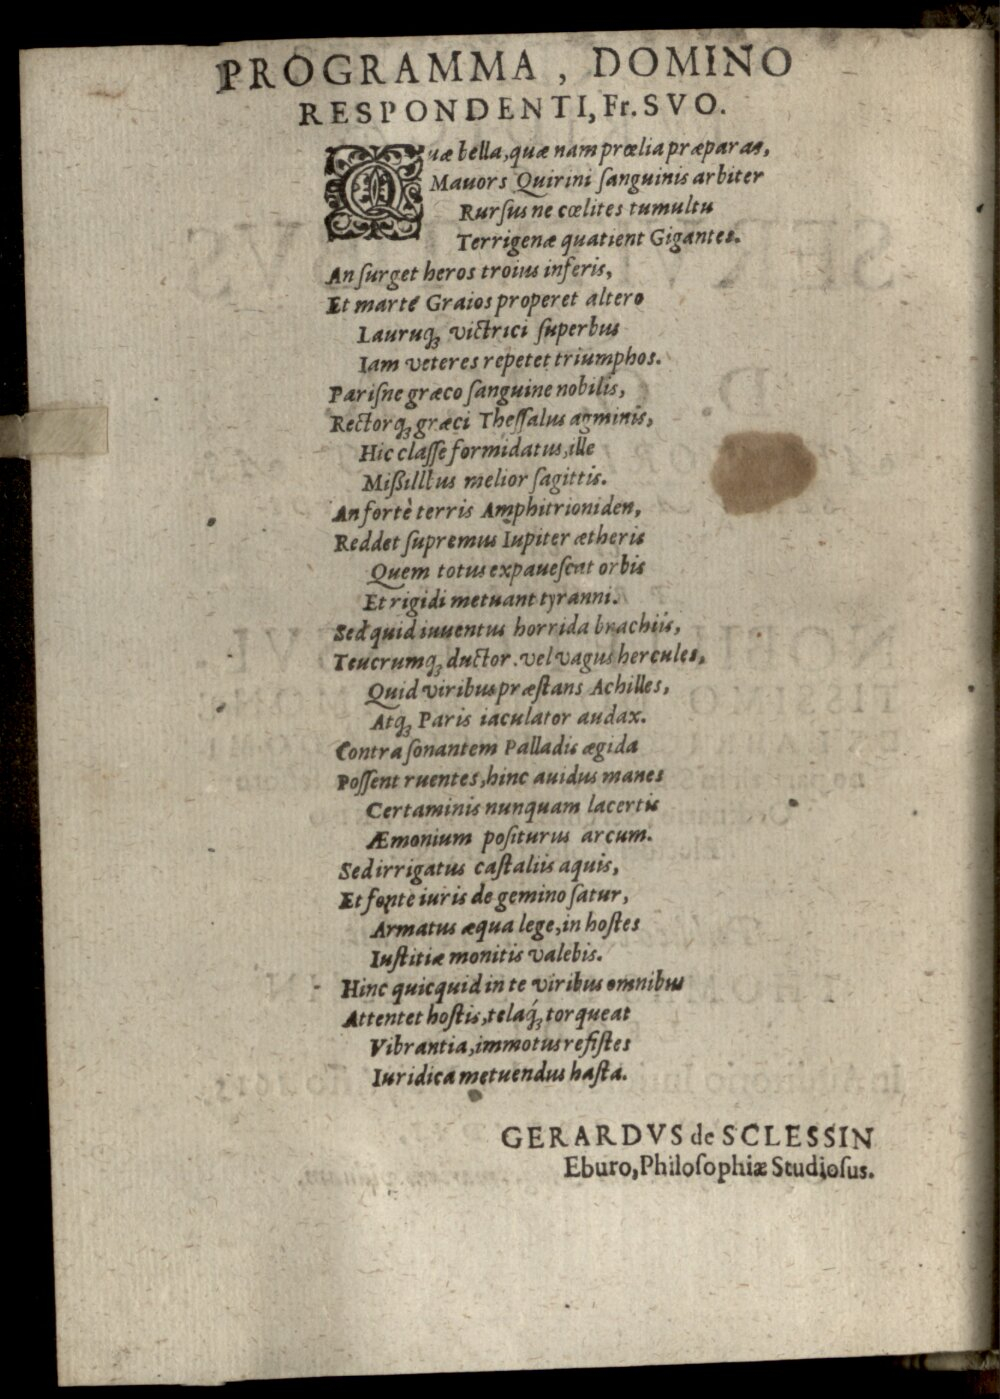 PROGRAMMA, DOMINO
RESPONDENTI, Fr. SVO.
Quæ bella, quæ nam prœlia præparas,
Mauors Quirini ſanguinis arbiter
Rurſus ne cœlites tumultu
Terrigenæ quatient Gigantes.
An ſurget heros troius inferis,
Et marte Graios properet altero
Lauruq́ꝫ victrici ſuperbus
Iam veteres repetet triumphos.
Pariſne græco ſanguine nobilis,
Rectorq́ꝫ græci Theſſalus agminis,
Hic claſſe formidatus, ille
Mißilibus melior ſagittis.
An fortè terris Amphitrioniden,
Reddet ſupremus Iupiter ætheris
Quem totus expaueſcat orbis
Et rigidi metuant tyranni.
Sed quid iuuentus horrida brachiis,
Teucrumq́ꝫ ductor. vel vagus hercules,
Quid viribus præſtans Achilles,
Atq́ꝫ Paris iaculator audax.
Contra ſonantem Palladis ægida
Poſſent ruentes, hinc auidus manes
Certaminis nunquam lacertis
Æmonium poſiturus arcum.
Sed irrigatus caſtaliis aquis,
Et fonte iuris de gemino ſatur,
Armatus æqua lege, in hoſtes
Iuſtitiæ monitis valebis.
Hinc quicquid in te viribus omnibus
Attentet hoſtis, telaq́ꝫ torqueat
Vibrantia, immotus reſiſtes
Iuridica metuendus haſta.
GERARDVS de SCLESSIN
Eburo, Philoſophiæ Studioſus.